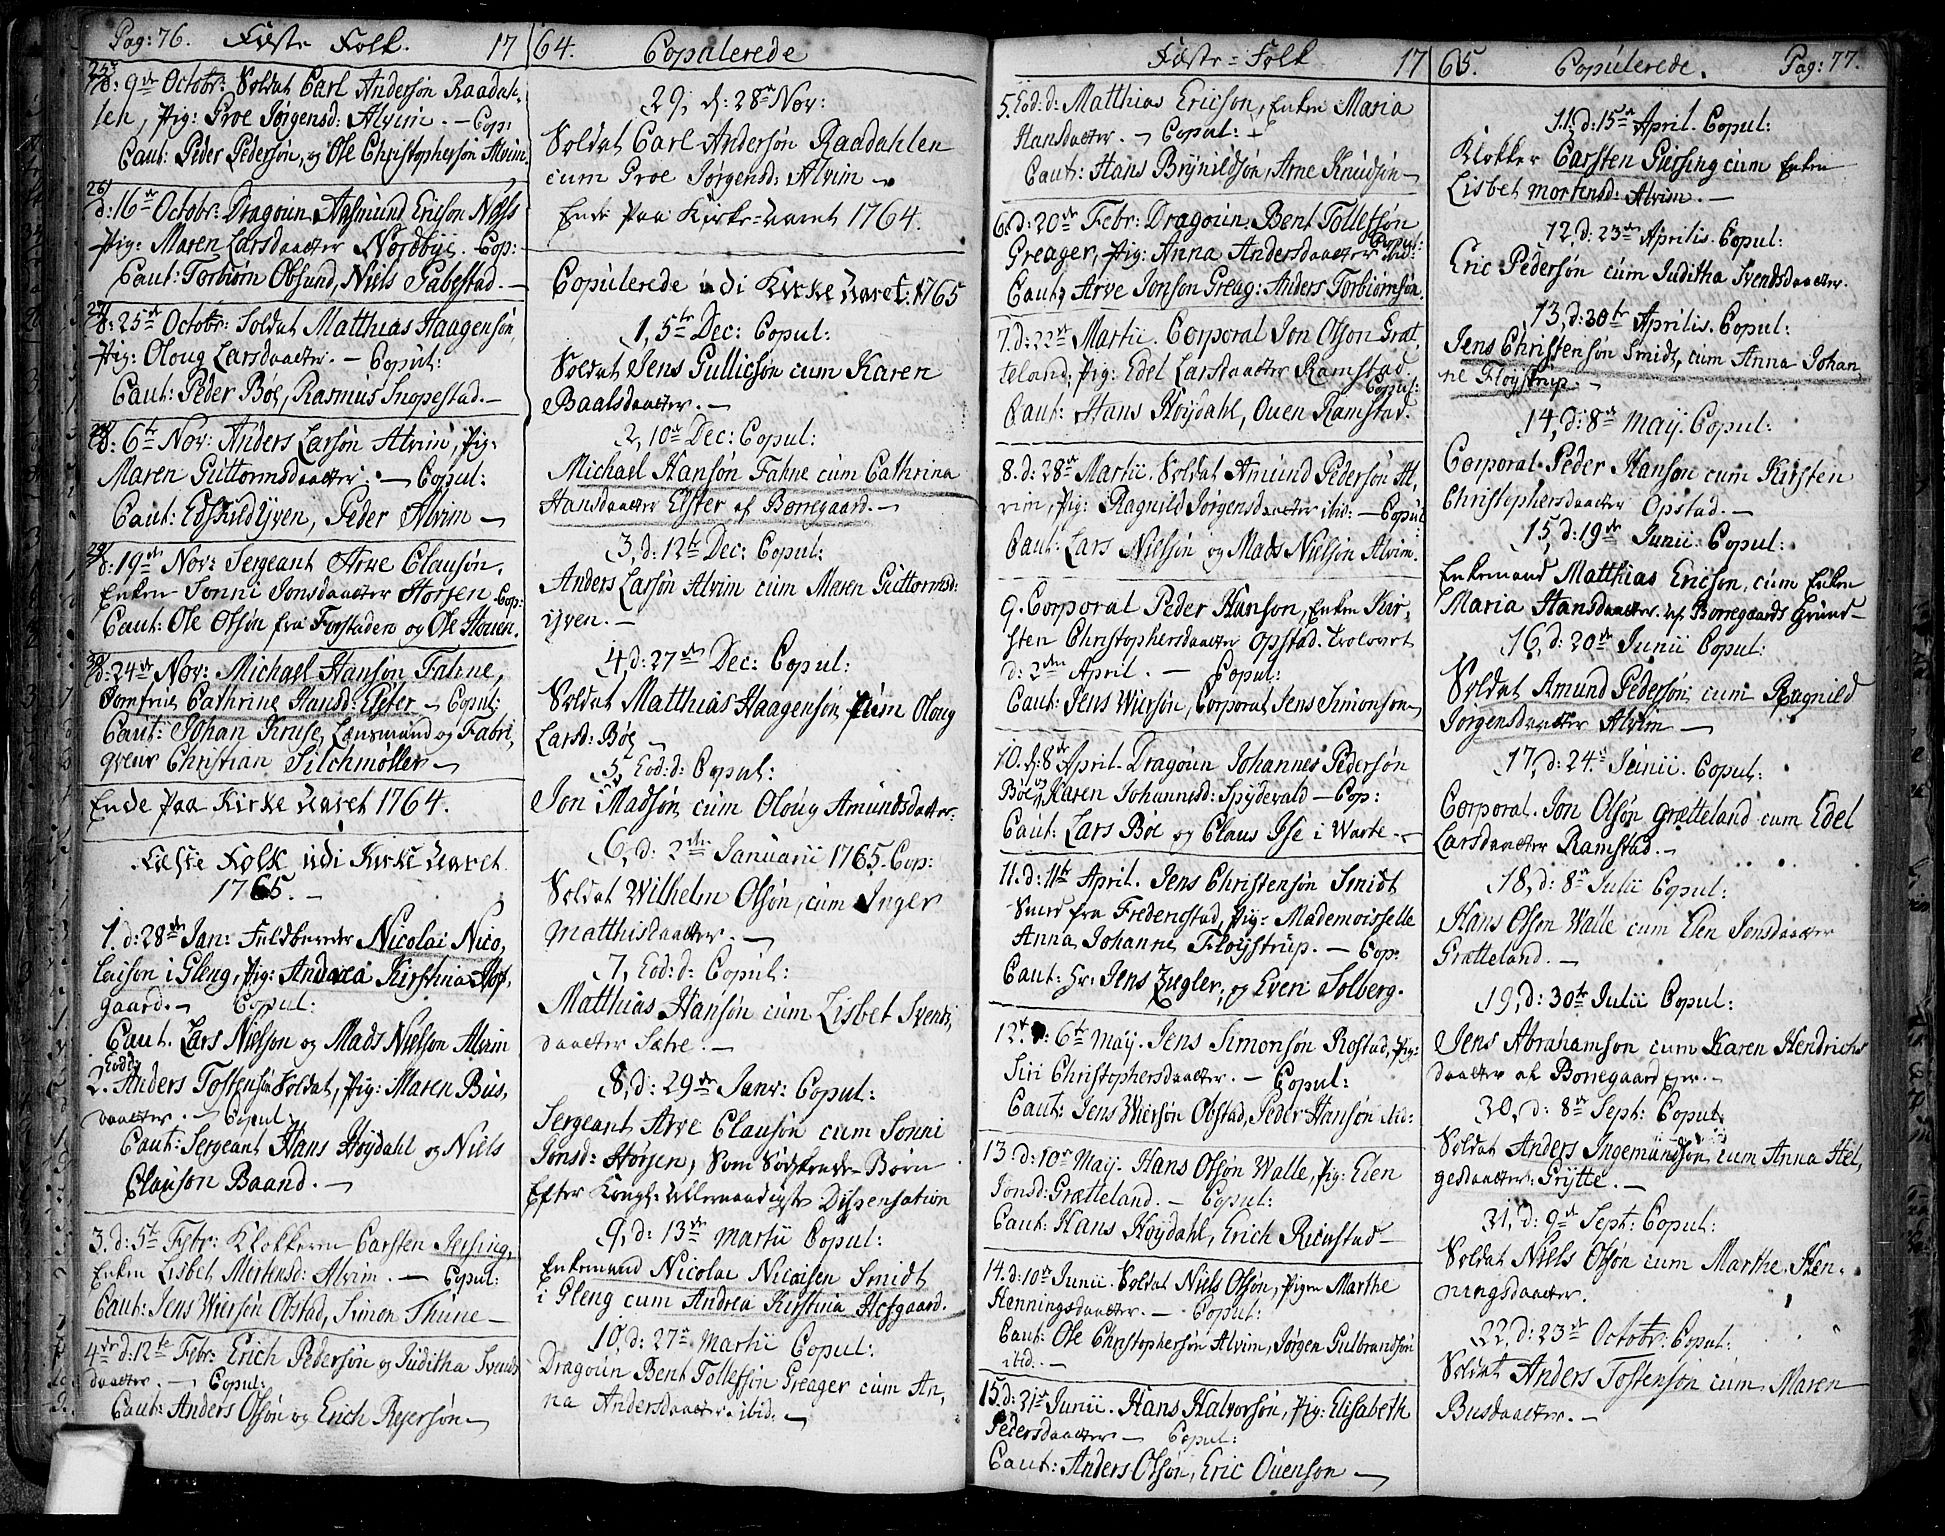 Pag: 76. Fæste Folk. 17
25. d: 9de Octobr: Soldat Carl Andersøn Raadah-
len, Pig: Groe Jørgensd: Alvim. - Cop:
Caut: Peder Pedersøn, og Ole Christophersøn Alvim.
26. d: 16de Octobr: Dragoun Aasmund Ericson Næss
Pig: Maren Larsdaatter Nordbye. Cop:
Caut: Torbiørn Obsund, Niels Gabestad.-
27. d: 25de Octobr: Soldat Matthias Haagensøn,
Pig: Oloug Larsdaatter. - Copul:
Caut: Peder Boe, Rasmus Snopestad.-
28. d: 6te Nov: Anders Larsøn Alvim, Pig:
Maren Guttormsdaatter. - Copul:
Caut: Edskild Yven, Peder Alvim -
29. d: 19de Nov: Sergeant Arve Clausøn,
Enken Sonni Jonsdaatter Horsen Cop:
Caut: Ole Olsøn fra Forstaden og Ole Houen.
30. d: 24de Nov: Michael Hansøn Fahne,
Jomfrue Cathrine Hansd: Elster - Copul:
Caut: Johan Kruse, Lænsmand og Fabri-
qveur Christian Silchmøller -
Ende Paa Kirke Aaret 1764.
Fæste Folk udi Kirke Aaret
1765. -
1. d: 28de Jan: Feldbereder Nicolai Nico-
laison i Gleng, Pig: Andrea Kirstina Hof-
gaard. - Copul:
Caut. Lars Nielson og Mads Nielson Alvim
2. Eod: d: Anders Tostensøn Soldat, Pig: Maren Bus-
daatter. - Copul:
Caut: Sergeant Hans Høydahl og Niels
Clauson Baand. -
3. d: 5te Febr: Klokkeren Carsten Jersing,
Enken Lisbet Mortensd: Alvim. - Copul:
Caut: Jens Wiersøn Obstad, Simon Thune -
4. d: 12te Febr: Erich Pedersøn og Juditha Svends
daatter. - Copul:
Caut: Anders Olsøn og Erich Reyersøn -
64. Copulerede
29, d: 28de Nov:
Soldat Carl Andersøn Raadahlen
cum Groe Jørgensd: Alvim -
Ende Paa Kirke-Aaret 1764.
Copulerede udi Kirke Aaret 1765
1, 5te Dec: Copul:
Soldat Jens Gullicsøn cum Karen
Baalsdaatter. -
2, 10de Dec: Copul:
Michael Hansøn Fahne cum Cathrina
Hansdaatter Elster af Borregaard. -
3, d: 12te Dec: Copul:
Anders Larsøn Alvim cum Maren Guttormsd:
Yven. -
4, d: 27de Dec: Copul:
Soldat Matthias Haagensøn, cum Oloug
Larsd: Boe -
5, Eod: d: Copul:
Jon Madsøn cum Oloug Amundsdaatter.
6, d: 2den Januarii 1765. Cop:
Soldat Wilhelm Olsøn, cum Inger
Matthisdaatter. -
7, Eod: d: Copul:
Matthias Hansøn cum Lisbet Svends
daatter Sætre. -
8, d: 29de Janr: Copul:
Sergeant Arve Clausøn cum Sonni
Jonsd: Horsen, Som Sødskende-Børn
Efter Kongl: Allernaadigste Dispensation
9, d: 13de Martii Copul:
Enkemand Nicolai Nicoisen Smidt
i Gleng cum Andrea Kirstina Hofgaard.
10, d: 27de Martii Copul:
Dragoun Bent Tollefsøn Greager cum An-
na Andersdaatter ibid: -
Fæste-Folk 17
5. Eod: d: Matthias Ericson, Enken Maria
Hansdaatter. - Copul: -
Caut: Hans Brynildsøn, Arne Knudsøn -
6. d: 20de Febr: Dragoun Bent Tollefsøn
Greager, Pig: Anna Andersdaatter ibid: Copul:
Caut: Arve Jonson Greag: Anders Torbiørnsøn.
7. d: 22de Martii. Corporal Jon Olson Græt-
teland, Pig: Edel Larsdaatter Ramstad.
Copul:
Caut: Hans Høydahl, Ouen Ramstad.
8. d: 28de Martii. Soldat Amund Pedersøn Al-
vim, Pig: Ragnild Jørgensdaatter ibid: - Copul
Caut: Lars Nielsøn og Mads Nielsøn Alvim.
9. Corporal Peder Hanson, Enken Kir-
sten Christophersdaatter Opstad. trolovet
d: 2den April. - Copul:
Caut: Jens Wiersøn, Corporal Jens Simonson -
10. d: 8de April. Dragoun Johannes Pedersøn
Boe og Karen Johannesd: Spydevald - Cop:
Caut: Lars Boe og Claus Ise i Warte. -
11. d: 11te April. Jens Christensøn Smidt
Smed fra Fredericstad, Pig: Mademoisselle
Anna Johanne Fløystrup. - Cop:
Caut: Hr: Jens Ziegler, og Even Solberg.
12. d: 6te May. Jens Simonsøn Rostad, Pig:
Siri Christophersdaatter. - Copul:
Caut: Jens Wiersøn Obstad, Peder Hansøn ibid:
13. d: 10de May. Hans Olsøn Walle, Pig: Elen
Jonsd: Grætteland. - Copul:
Caut: Hans Høydahl, Erich Rierstad -
14. d: 10de Junii. Soldat Niels Olsøn, Pigen Marthe
Henningsdaatter. - Copul:
Caut: Ole Christophersøn Alvim, Jørgen Gulbrandsøn
ibid. -
15. d: 21de Junii. Hans Halvorsøn, Pig: Elisabeth
Pedersdaatter - Copul:
Caut: Anders Olsøn, Eric Ouenson -
65. Copulerede. Pag: 77.
11. d: 15de April. Copul:
Klokker Carsten Giersing cum Enken
Lisbet Mortensd: Alvim. -
12, d: 23de Aprilis. Copul:
Eric Pedersøn cum Juditha Svendsdaatter.
13, d: 30te Aprilis. Copul:
Jens Christensøn Smidt, cum Anna Johan-
ne Fløystrup -
14, d: 8de May. Copul:
Corporal Peder Hanson cum Kirsten
Christophersdaatter Opstad. -
15, d: 19de Junii Copul:
Enkemand Matthias Ericson, cum Enken
Maria Hansdaatter af Borregaards Grund -
16, d: 20de Junii Copul:
Soldat Amund Pedersøn cum Ragnild
Jørgensdaatter Alvim -
17, d: 24de Junii. Copul:
Corporal Jon Olsøn Grætteland cum Edel
Larsdaatter Ramstad. -
18, d: 8de Julii Copul:
Hans Olsen Walle cum Elen Jonsdaatter
Grætteland. -
19, d: 30te Julii Copul:
Jens Abrahamson cum Karen Hendrichs
daatter af Borregaard Eyer. -
20, d: 8de Sept: Copul:
Soldat Anders Ingemundsøn, cum Anna Hel-
gesdaatter Grytte. -
21, d: 9de Sept: Copul:
Soldat Niels Olsøn cum Marthe Hen-
ningsdaatter.
22, d: 23de Octobr: Copul:
Soldat Anders Tostensøn cum Maren
Busdaatter. -